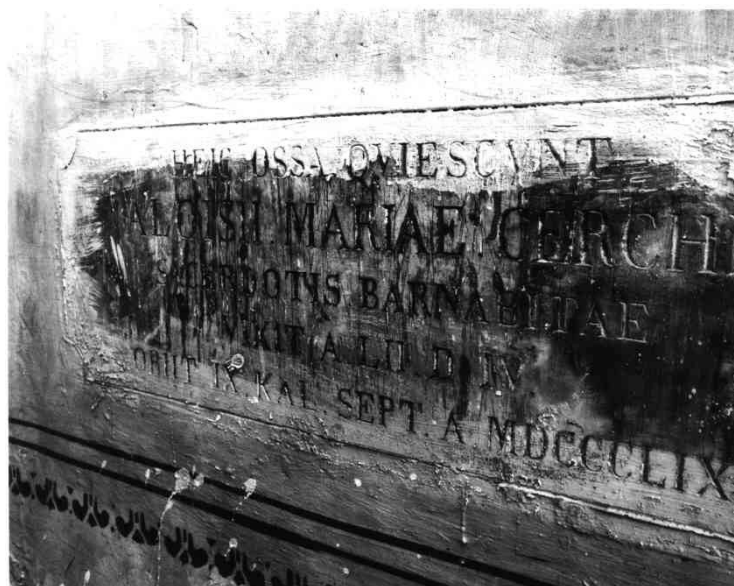 HEIC OSSA QVIESCVNT
ALOISII MARIAE CERCHI
SACERDOTIS BARNABITAE
VIXIT A LII D IV
OBIIT IX KAL. SEPT. A MDCCCLIX